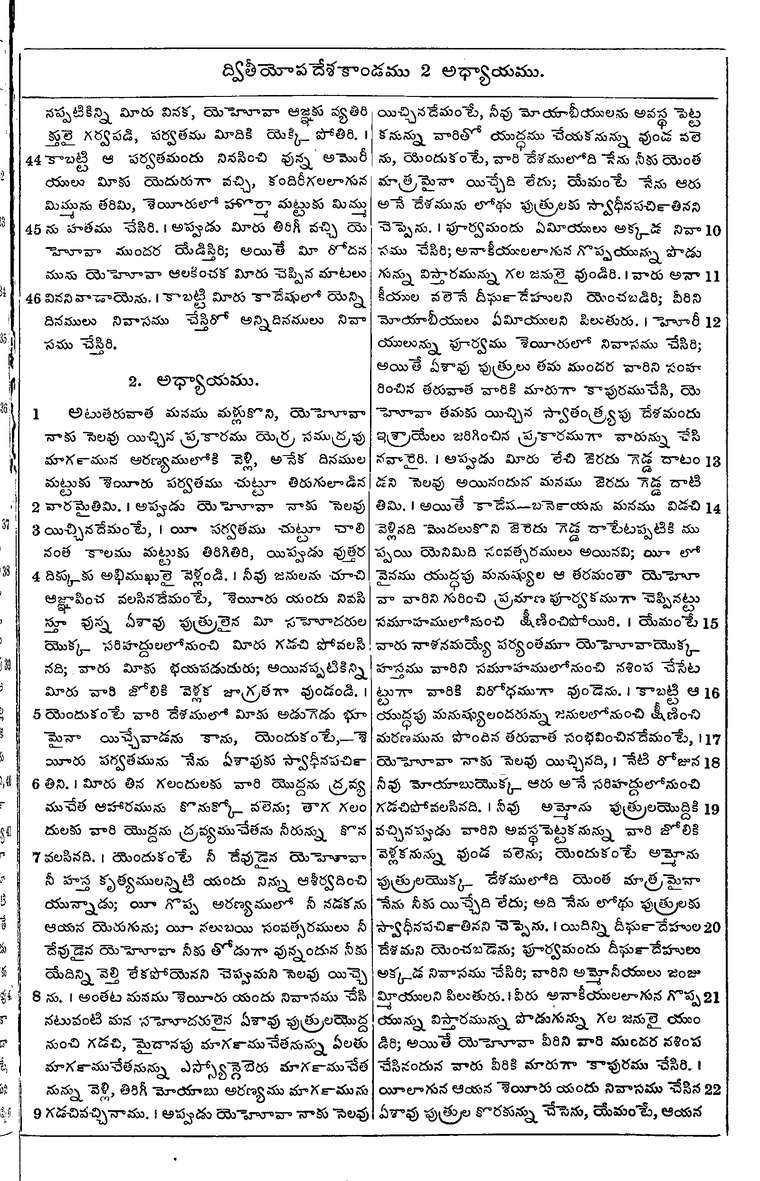 ద్వితీయోపదేశకాండము 2 అధ్యాయము.
నప్పటికిన్ని మీరు వినక, యెహోవా ఆజ్ఞకు వ్యతిరి
క్తులై గర్వపడి, పర్వతము మీదికి యెక్కి పోతిరి. ।
44 కాబట్టి ఆ పర్వతమందు నివసించి వున్న అమోరీ
యులు మీకు యెదురుగా వచ్చి, కందిరీగలలాగున
మిమ్మును తరిమి, శెయీరులో హోర్మా మట్టుకు మిమ్ము
45 ను హతము చేసిరి. । అప్పుడు మీరు తిరిగీ వచ్చి యె
హోవా ముందర యేడిస్తిరి; అయితే మీ రోదన
మును యెహోవా ఆలకించక మీరు చెప్పిన మాటలు
46 విననివాడాయెను. । కాబట్టి మీరు కాదేషులో యెన్ని
దినములు నివాసము చేస్తిరో అన్నిదినములు నివా
సము చేస్తిరి.
2. అధ్యాయము.
1 అటుతరువాత మనము మళ్లుకొని, యెహోవా
నాకు సెలవు యిచ్చిన ప్రకారము యెర్ర సముద్రపు
మార్గమున అరణ్యములోకి వెళ్లి, అనేక దినముల
మట్టుకు శెయీరు పర్వతము చుట్టూ తిరుగులాడిన
2 వారమైతిమి. । అప్పుడు యెహోవా నాకు సెలవు
3 యిచ్చినదేమంటే, । యీ పర్వతము చుట్టూ చాలి
నంత కాలము మట్టుకు తిరిగితిరి, యిప్పుడు వుత్తర
4 దిక్కుకు అభిముఖులై వెళ్లండి. । నీవు జనులను చూచి
ఆజ్ఞాపించ వలసినదేమంటే, శెయీరు యందు నివసి
స్తూ వున్న ఏశావు పుత్రులైన మీ సహోదరుల
యొక్క సరిహద్దులలోనుంచి మీరు గడచి పోవలసి
నది; వారు మీకు భయపడుదురు; అయినప్పటికిన్ని
మీరు వారి జోలికి వెళ్లక జాగ్రతగా వుండండి. ।
5 యెందుకంటే వారి దేశములో మీకు అడుగెడు భూ
మైనా యిచ్చేవాడను కాను, యెందుకంటే,—శె
యీరు పర్వతమును నేను ఏశావుకు స్వాధీనపర్చి
6 తిని. । మీరు తిన గలందులకు వారి యొద్దను ద్రవ్య
ముచేత ఆహారమును కొనుక్కో వలెను; తాగ గలం
దులకు వారి యొద్దను ద్రవ్యముచేతను నీరున్ను కొన
7 వలసినది. । యెందుకంటే నీ దేవుడైన యెహోవా
నీ హస్త కృత్యములన్నిటి యందు నిన్ను ఆశీర్వదించి
యున్నాడు; యీ గొప్ప అరణ్యములో నీ నడకను
ఆయన యెరుగును; యీ నలుబయి సంవత్సరములు నీ
దేవుడైన యెహోవా నీకు తోడుగా వున్నందున నీకు
యేదిన్ని వెల్తి లేకపోయెనని చెప్పుమని సెలవు యిచ్చె
8 ను. । అంతట మనము శెయీరు యందు నివాసము చేసి
నటువంటి మన సహోదరులైన ఏశావు పుత్రులయొద్ద
నుంచి గడచి, మైదానపు మార్గముచేతనున్ను ఏలతు
మార్గముచేతనున్ను ఎస్యోన్గెబెరు మార్గముచేత
నున్ను వెళ్లి, తిరిగీ మోయాబు అరణ్యము మార్గమును
9 గడచివచ్చినాము. । అప్పుడు యెహోవా నాకు సెలవు
యిచ్చినదేమంటే, నీవు మోయాబీయులను అవస్థ పెట్ట
కనున్ను వారితో యుద్ధము చేయకనున్ను వుండ వలె
ను, యెందుకంటే, వారి దేశములోది నేను నీకు యెంత
మాత్రమైనా యిచ్చేది లేదు; యేమంటే నేను ఆరు
అనే దేశమును లోథు పుత్రులకు స్వాధీనపర్చితినని
చెప్పెను. । పూర్వమందు ఏమీయులు అక్కడ నివా 10
సము చేసిరి; అనాకీయులలాగున గొప్పయున్ను పొడు
గున్ను విస్తారమున్ను గల జనులై వుండిరి. । వారు అనా 11
కీయుల వలెనే దీర్ఘదేహులని యెంచబడిరి; వీరిని
మోయాబీయులు ఏమీయులని పిలుతురు. । హోరీ 12
యులున్ను పూర్వము శెయీరులో నివాసము చేసిరి;
అయితే ఏశావు పుత్రులు తమ ముందర వారిని సంహ
రించిన తరువాత వారికి మారుగా కాపురముచేసి, యె
హోవా తమకు యిచ్చిన స్వాతంత్ర్యపు దేశమందు
ఇశ్రాయేలు జరిగించిన ప్రకారముగా వారున్ను చేసి
నవారైరి. । అప్పుడు మీరు లేచి జెరదు గెడ్డ దాటం 13
డని సెలవు అయినందున మనము జెరదు గెడ్డ దాటి
తిమి. । అయితే కాదేష—బర్నెయను మనము విడచి 14
వెళ్లినది మొదలుకొని జెరెదు గెడ్డ దాటేటప్పటికి ము
ప్పయి యెనిమిది సంవత్సరములు అయినవి; యీ లో
వైనము యుద్ధపు మనుష్యుల ఆ తరమంతా యెహో
వా వారిని గురించి ప్రమాణ పూర్వకముగా చెప్పినట్టు
సమూహములోనుంచి క్షీణించిపోయిరి. । యేమంటే 15
వారు నాశనమయ్యే పర్యంతమూ యెహోవాయొక్క
హస్తము వారిని సమూహములోనుంచి నశింప చేసేట
ట్టుగా వారికి విరోధముగా వుండెను. । కాబట్టి ఆ 16
యుద్ధపు మనుష్యులందరున్ను జనులలోనుంచి క్షీణించి
మరణమును పొందిన తరువాత సంభవించినదేమంటే, । 17
యెహోవా నాకు సెలవు యిచ్చినది, । నేటి రోజున 18
నీవు మోయాబుయొక్క ఆరు అనే సరిహద్దులోనుంచి
గడచిపోవలసినది. । నీవు అమ్మోను పుత్రులయొద్దికి 19
వచ్చినప్పుడు వారిని అవస్థపెట్టకనున్ను వారి జోలికి
వెళ్లకనున్ను వుండ వలెను; యెందుకంటే అమ్మోను
పుత్రులయొక్క దేశములోది యెంత మాత్రమైనా
నేను నీకు యిచ్చేది లేదు; అది నేను లోథు పుత్రులకు
స్వాధీనపర్చితినని చెప్పెను. । యిదిన్ని దీర్ఘదేహుల 20
దేశమని యెంచబడెను; పూర్వమందు దీర్ఘదేహులు
అక్కడ నివాసము చేసిరి; వారిని అమ్మోనీయులు జంజు
మ్మీయులని పిలుతురు. । వీరు అనాకీయులలాగున గొప్ప 21
యున్ను విస్తారమున్ను పొడుగున్ను గల జనులై యుం
డిరి; అయితే యెహోవా వీరిని వారి ముందర నశింప
చేసినందున వారు వీరికి మారుగా కాపురము చేసిరి. ।
యీలాగున ఆయన శెయీరు యందు నివాసము చేసిన 22
ఏశావు పుత్రుల కొరకున్ను చేసెను, యేమంటే, ఆయన